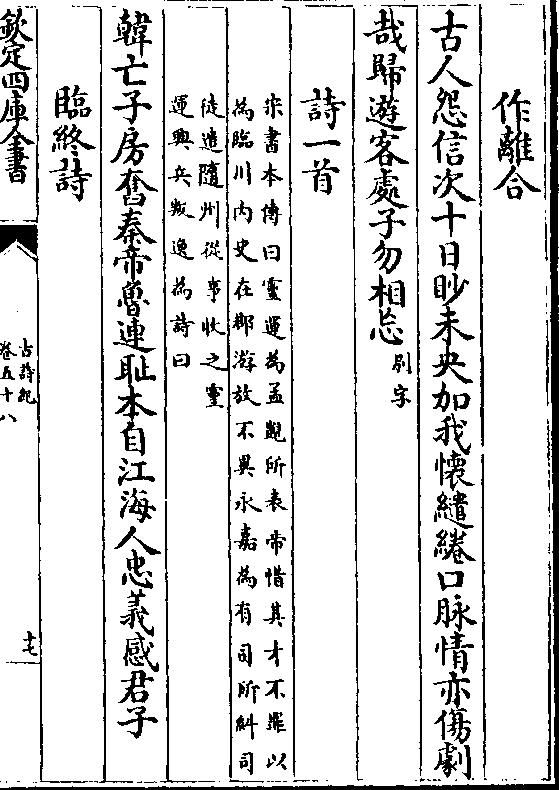 作離合
古人怨信次十日眇未央加我懷繾綣口脉情亦傷劇
哉歸遊客處子勿相忘別字
詩一首
宋書本傳曰靈運為孟覬所表帝惜其才不罪以
為臨川内史在郡游放不異永嘉為有司所糾司
徒遣隨州從事收之靈
運興兵叛逸為詩曰
韓亡子房奮秦帝魯連耻本自江海人忠義感君子
臨終詩
欽定四庫全書
古詩紀
卷五十八
十七